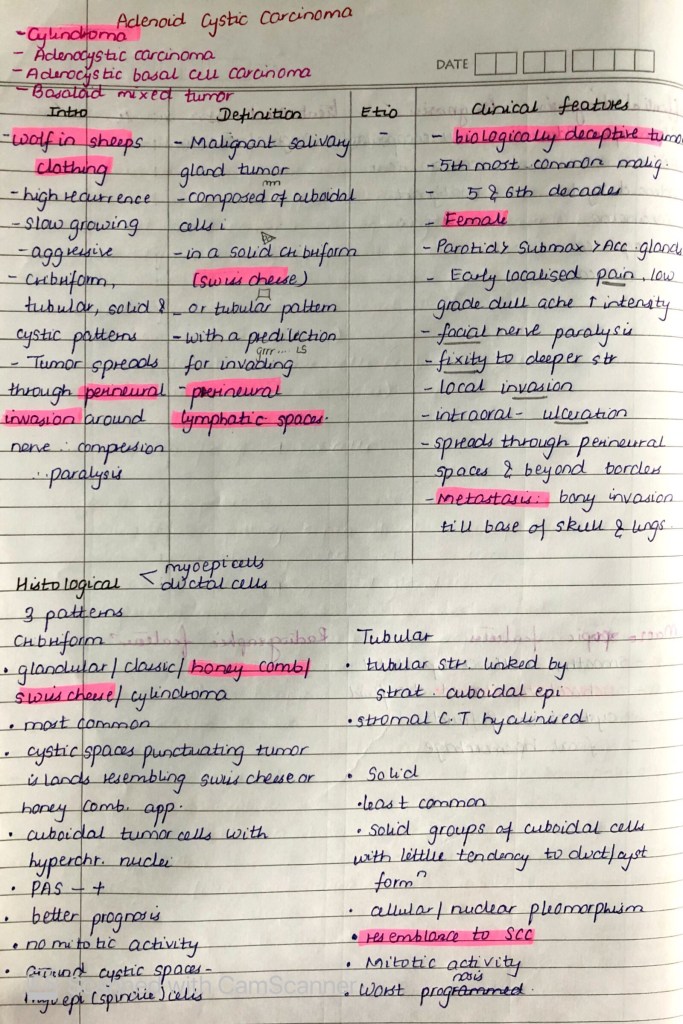 Adenoid Cystic Carcinoma
- Cylindroma
- Adenocystic carcinoma
- Adenocystic basal cell carcinoma
- Basaloid mixed tumor
DATE
Intro
- wolf in sheeps
clothing
- high recurrence
- slow growing
- aggressive
- cribriform,
tubular, solid &
cystic patterns
- Tumor spreads
through perineural
invasion around
nerve ∴ compression
∴ paralysis
Definition
- Malignant salivary
gland tumor
- composed of cuboidal
cells
- in a solid cribriform
(swiss cheese)
- or tubular pattern
- with a predilection
for invading
- perineural
lymphatic spaces.
Etio
-
Clinical features
- biologically deceptive tumor
- 5th most common malig.
- 5 & 6th decades
- Female
- Parotid > Submax > Acc. glands
- Early localised pain, low
grade dull ache ↑ intensity
- facial nerve paralysis
- fixity to deeper str
- local invasion
- intraoral - ulceration
- spreads through perineural
spaces & beyond borders
- Metastasis: bony invasion
till base of skull & lungs.
Histological < myoepi cells
ductal cells
3 patterns
Cribriform
• glandular / classic / honey comb /
swiss cheese / cylindroma
• most common
• cystic spaces punctuating tumor
islands resembling swiss cheese or
honey comb. app.
• cuboidal tumor cells with
hyperchr. nuclei
• PAS - +
• better prognosis
• no mitotic activity
• around cystic spaces -
epi (spindle) cells
Tubular
• tubular str. linked by
strat. cuboidal epi
• stromal C.T hyalinised
• Solid
• least common
• solid groups of cuboidal cells
with little tendency to duct/cyst
formⁿ
• cellular / nuclear pleomorphism
• resemblance to SCC
• Mitotic activity
• Worst prognosis
with CamScanner